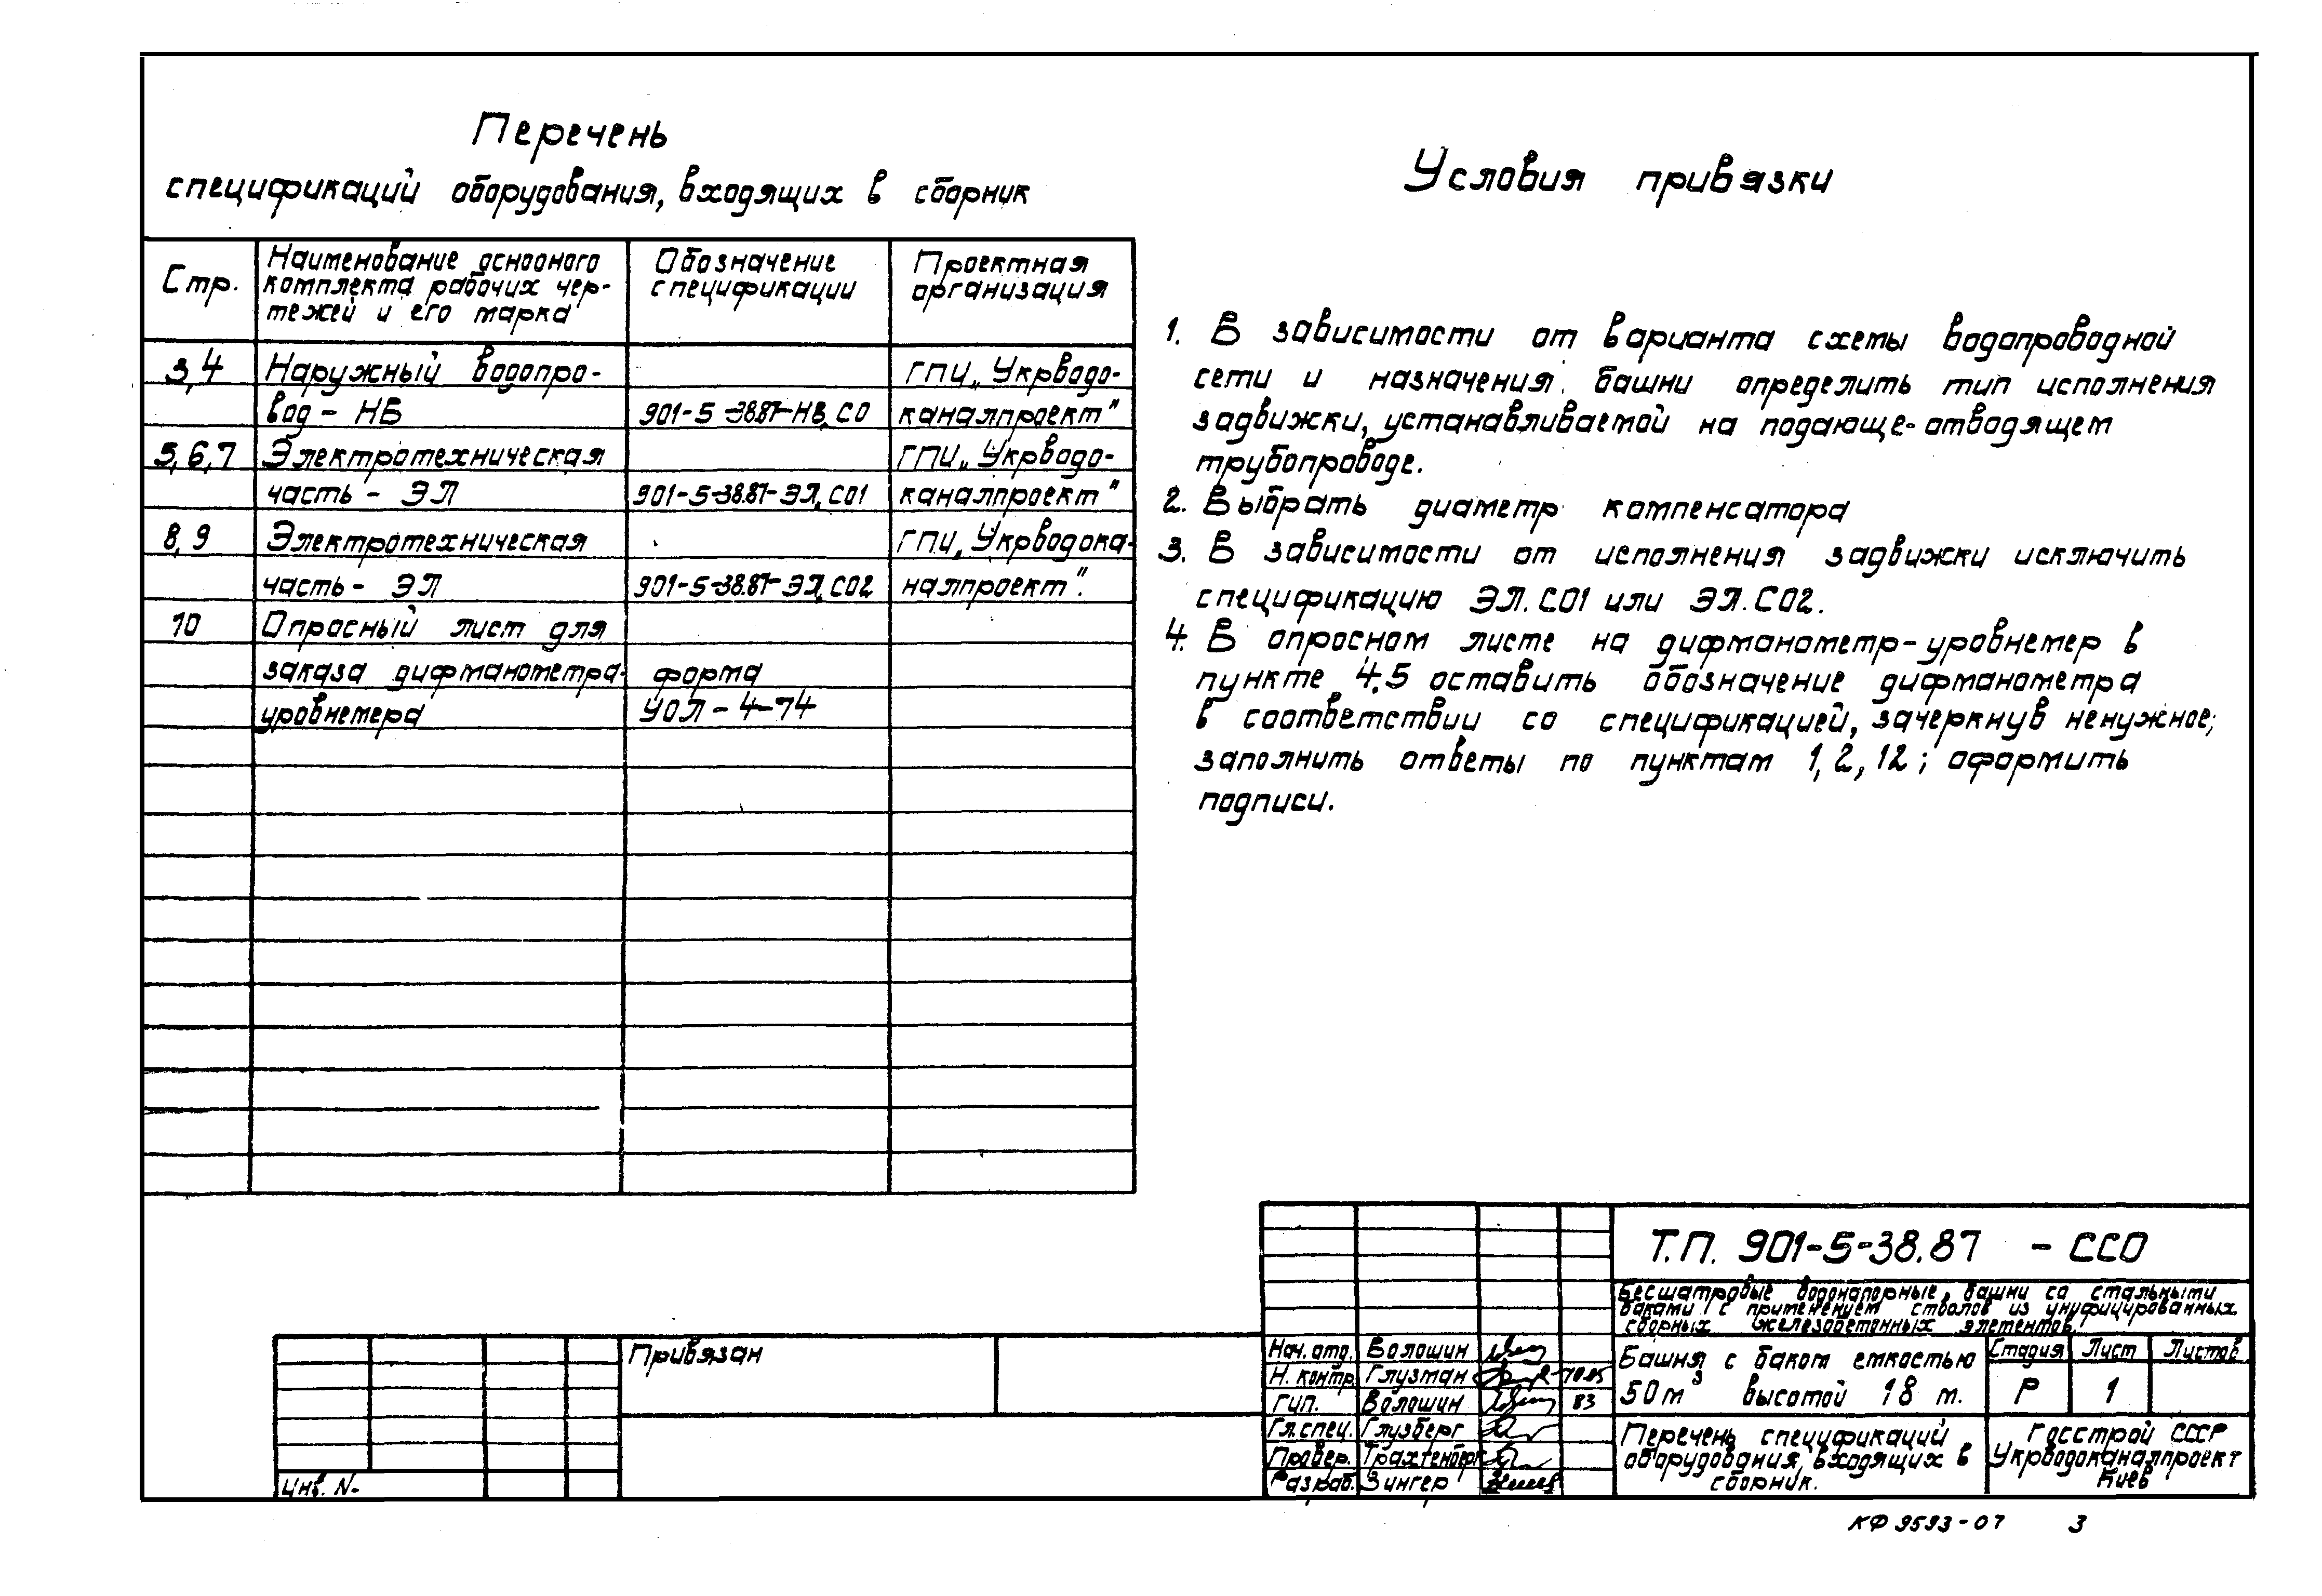 Перечень
спецификаций оборудования, входящих в сборник
Стр.
Наименование основного
комплекта рабочих чер-
тежей и его марка
Обозначение
спецификации
Проектная
организация
3,4 Наружный водопро- ГПИ „Укрводо-
вод - НВ 901-5-38.87-НВ.СО каналпроект"
5,6,7 Электротехническая ГПИ „Укрводо-
часть - ЭЛ 901-5-38.87-ЭЛ.СО1 каналпроект"
8,9 Электротехническая ГПИ „Укрводока-
часть - ЭЛ 901-5-38.87-ЭЛ.СО2 налпроект".
10 Опросный лист для
заказа дифманометра- форма
уровнемера УОЛ-4-74
Условия привязки
1. В зависимости от варианта схемы водопроводной
сети и назначения башни определить тип исполнения
задвижки, устанавливаемой на подающе-отводящем
трубопроводе.
2. Выбрать диаметр компенсатора
3. В зависимости от исполнения задвижки исключить
спецификацию ЭЛ.СО1 или ЭЛ.СО2.
4. В опросном листе на дифманометр-уровнемер в
пункте 4.5 оставить обозначение дифманометра
в соответствии со спецификацией, зачеркнув ненужное;
заполнить ответы по пунктам 1,2,12; оформить
подписи.
Привязан
Инв. N-
Т.П. 901-5-38.87 - ССО
Бесшатровые водонапорные башни со стальными
баками с применением стволов из унифицированных
сборных железобетонных элементов.
Нач. отд. Волошин
Н. контр. Глузман
ГИП. Волошин 83
Гл. спец. Глузберг
Провер. Трахтенберг
Разраб. Зингер
Башня с баком емкостью
50м³ высотой 18 м.
Стадия Лист Листов
Р 1
Перечень спецификаций
оборудования, входящих в
сборник.
Госстрой СССР
Укрводоканалпроект
Киев
КФ 9593-07 3